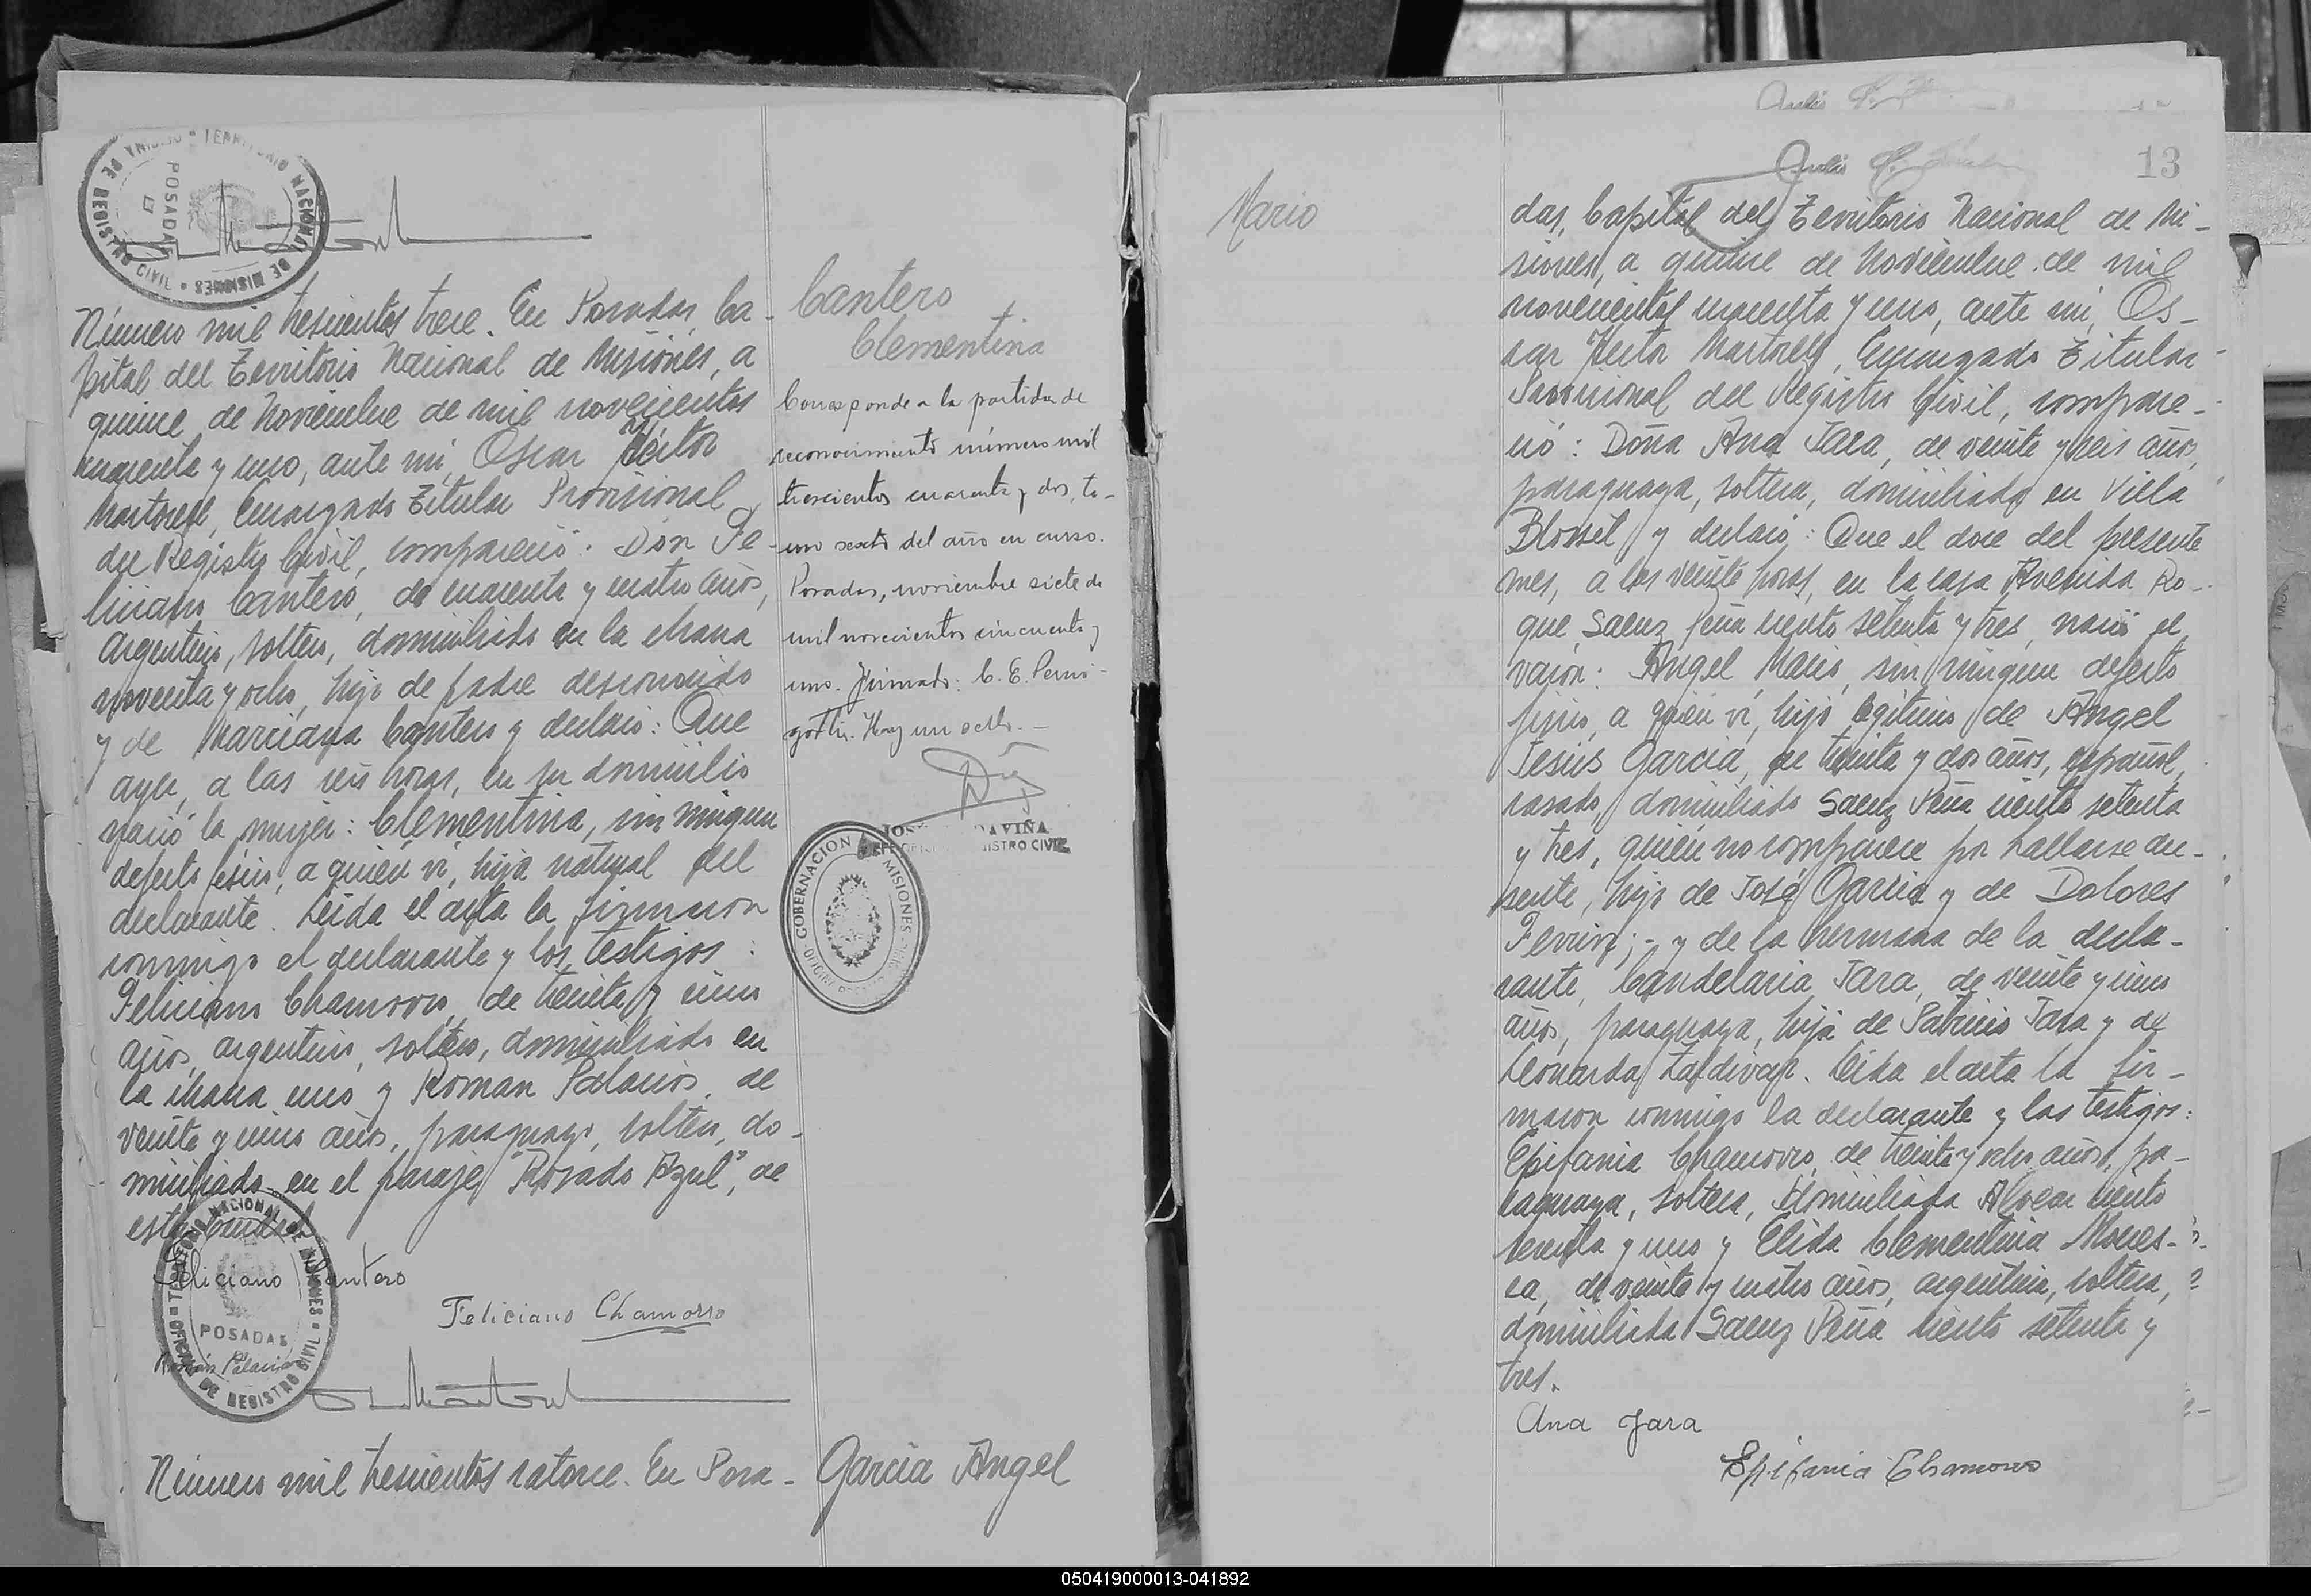 TERRITORIO NACIONAL DE MISIONES
OFICINA DE REGISTRO CIVIL
POSADAS
Número mil trescientos trece. En Posadas, Ca-
pital del Territorio Nacional de Misiones, a
quince de Noviembre de mil novecientos
cuarenta y uno, ante mí, Oscar Héctor
Martorell, Encargado Titular Provisional
del Registro Civil, compareció: Don Fe-
liciano Cantero, de cuarenta y cuatro años,
argentino, soltero, domiciliado en la chacra
noventa y ocho, hijo de padre desconocido
y de Marciana Cantero y declaró: Que
ayer, a las seis horas, en su domicilio
nació la mujer: Clementina, sin ningun
defecto físico, a quién ví, hija natural del
declarante. Leída el acta la firmaron
conmigo el declarante y los testigos:
Feliciano Chamorro, de treinta y cinco
años, argentino, soltero, domiciliado en
la chacra uno y Roman Palacios, de
veinte y cinco años, paraguayo, soltero, do-
miciliado en el paraje "Rosado Azul", de
esta Ciudad.
Feliciano Cantero
Feliciano Chamorro
Román Palacios
TERRITORIO NACIONAL DE MISIONES
OFICINA DE REGISTRO CIVIL
POSADAS
Número mil trescientos catorce. En Posa-
Cantero
Clementina
Corresponde a la partida de
reconocimiento número mil
trescientos cuarenta y dos, to-
mo sexto del año en curso.
Posadas, noviembre siete de
mil novecientos cincuenta y
uno. Firmado: C. E. Perni-
gotti. Hay un sello.-
DAVIÑA
REGISTRO CIVIL
GOBERNACION MISIONES
Garcia Angel
Mario
13
das, Capital del Territorio Nacional de Mi-
siones, a quince de Noviembre de mil
novecientos cuarenta y uno, ante mí, Os-
car Héctor Martorell, Encargado Titular
Provisional del Registro Civil, compare-
ció: Doña Ana Jara, de veinte y seis años,
paraguaya, soltera, domiciliada en Villa
Blosset y declaró: Que el doce del presente
mes, a las veinte horas, en la casa Avenida Ro-
que Saenz Peña ciento setenta y tres, nació el
varón: Angel Mario, sin ningun defecto
físico, a quién ví, hijo legítimo de Angel
Jesús García, de treinta y dos años, español,
casado, domiciliado Saenz Peña ciento setenta
y tres, quién no comparece por hallarse au-
sente, hijo de José García y de Dolores
y de la hermana de la decla-
rante, Candelaria Jara, de veinte y cinco
años, paraguaya, hija de Patricio Jara y de
Leonarda Zaldivar. Leída el acta la fir-
maron conmigo la declarante y las testigos:
Epifania Chamorro, de treinta y ocho años, pa-
raguaya, soltera, domiciliada Alvear ciento
y uno y Elida Clementina
de veinte y cuatro años, argentina, soltera,
domiciliada Saenz Peña ciento setenta y
tres.
Ana Jara
Epifania Chamorro
050419000013-041892